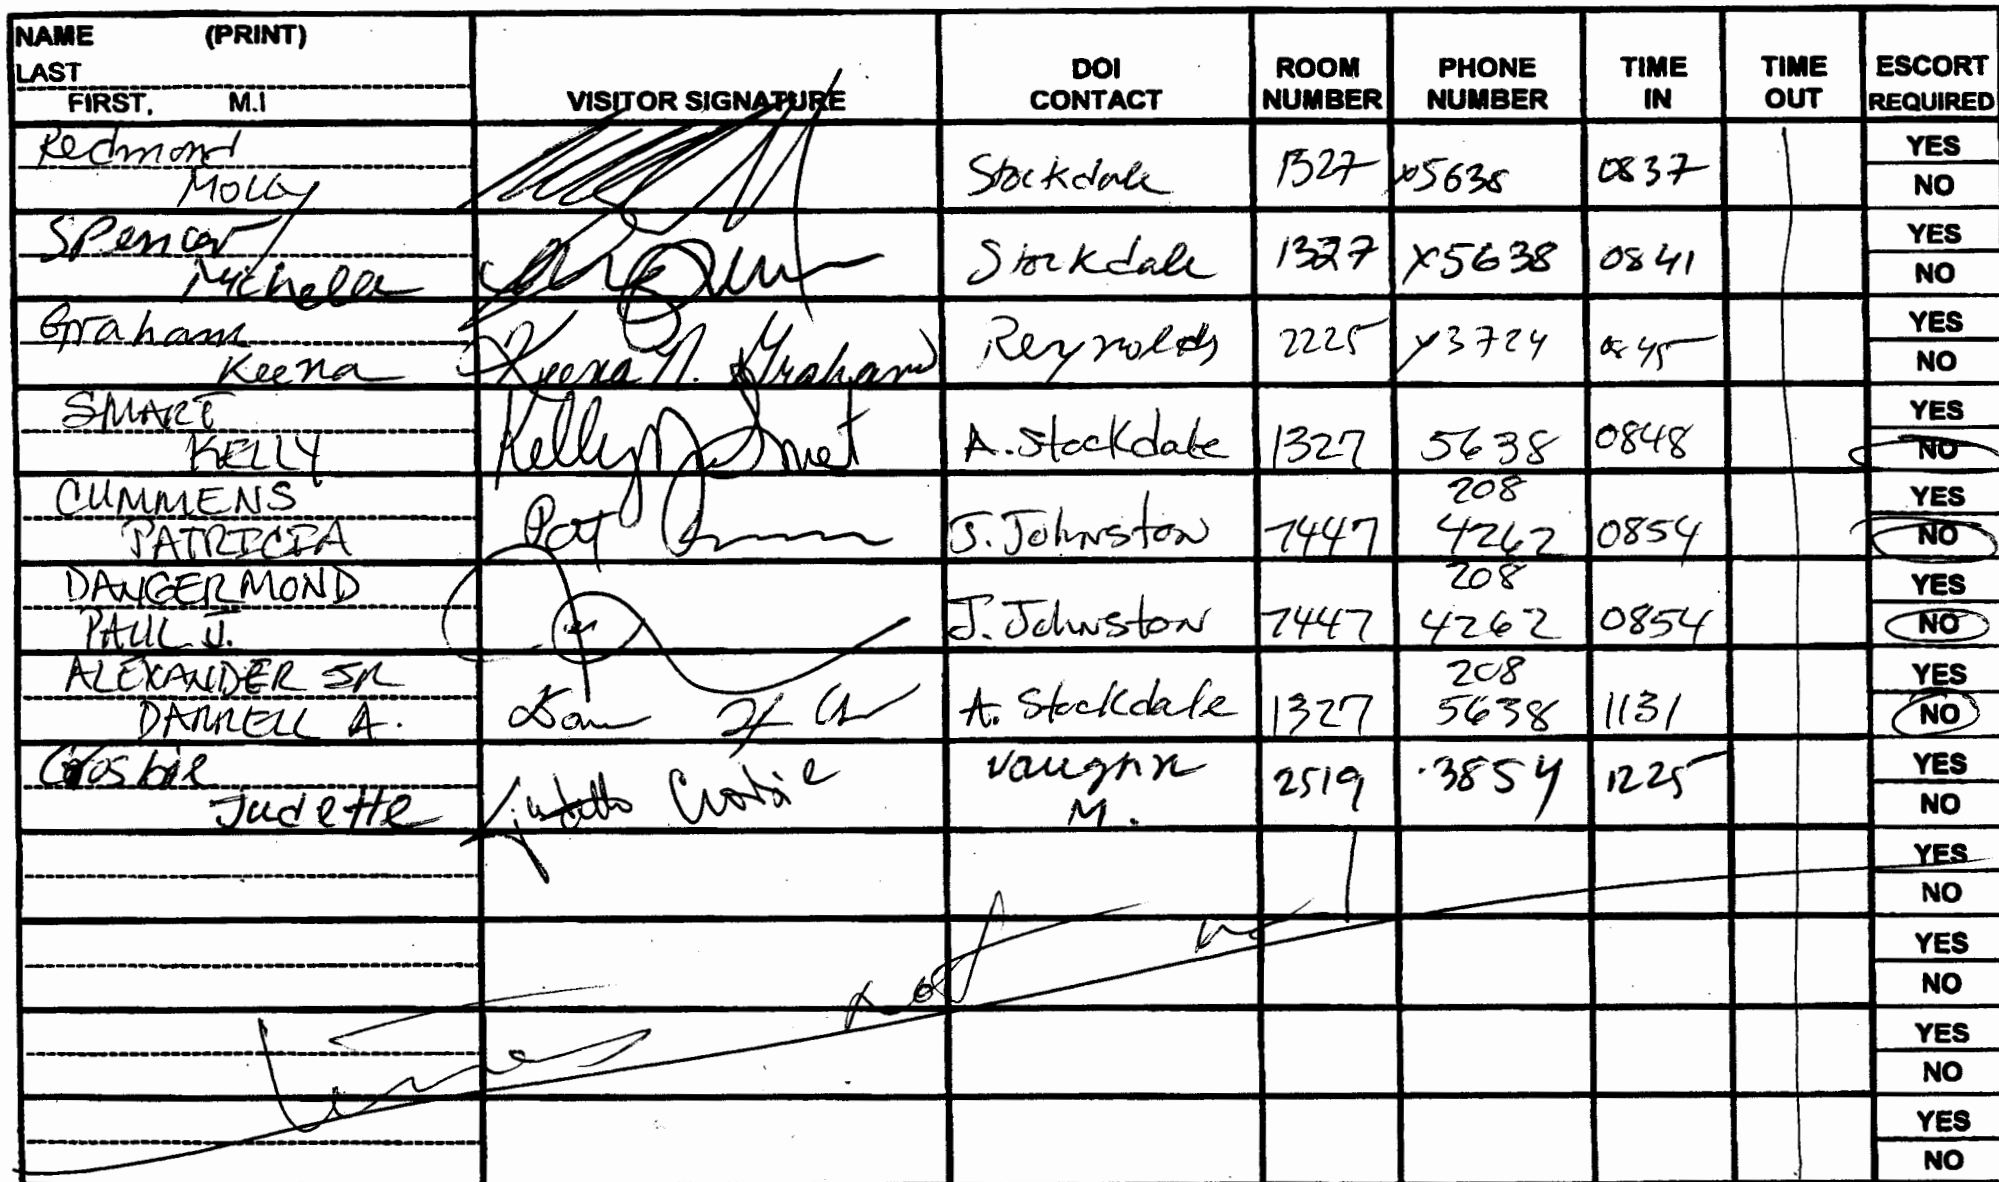 NAME (PRINT)
LAST
FIRST, M.I
VISITOR SIGNATURE
DOI CONTACT
ROOM NUMBER
PHONE NUMBER
TIME IN
TIME OUT
ESCORT REQUIRED
Redmond Molly Stockdale 1327 x5638 0837 YES NO
Spencer Michelle Stockdale 1327 x5638 0841 YES NO
Graham Keena Keena N. Graham Reynolds 2225 x3724 0845 YES NO
SMART KELLY Kelly A. Stockdale 1327 5638 0848 YES NO
CUMMENS PATRICIA Pat J. Johnston 7447 208 4262 0854 YES NO
DANGERMOND PAUL J. J. Johnston 7447 208 4262 0854 YES NO
ALEXANDER SR DARRELL A. A. Stockdale 1327 208 5638 1131 YES NO
Crosbie Judette Judette Crosbie Vaughn M. 2519 3854 1225 YES NO
YES
NO
YES
NO
YES
NO
YES
NO